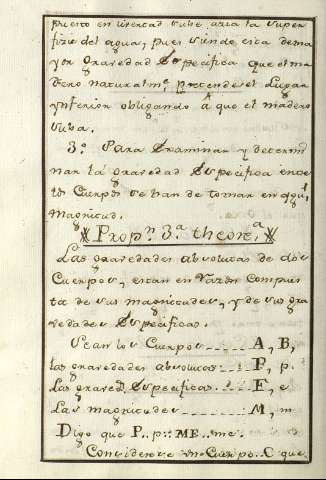 puesto en libertad sube azia la super
fizie del agua, pues siendo esta de ma
yor gravedad Especifica que el ma
dero naturalmte pretende el Lugar
ynferior obligando á que el madero
suba.
3º. Para Examinar y determi
nar la gravedad Especifica en
los Cuerpos se han de tomar en ygual
magnitud.
Propn. 3ª theorema
Las gravedades absolutas de dos
Cuerpos, estan en razon Compues
ta de sus magnitudes, y de sus gra
vedades Especificas.
Sean los Cuerpos A, B,
las gravedades absolutas P, p.
Las graved. Especificas E, e
Las magnitudes M, m
Digo que P..p:: ME..me.
Considerese un Cuerpo C que